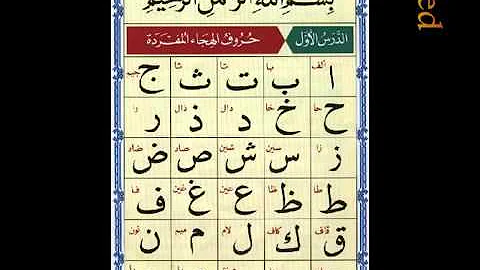 بِسْمِ اللهِ الرَّحْمٰنِ الرَّحِيْمِ
الدَّرْسُ الأوَّل حُرُوفُ الهِجَاءِ المُفْرَدَة
الف با تا ثا جيم
ا ب ت ث ج
حا خا دال ذال را
ح خ د ذ ر
زا سين شين صاد ضاد
ز س ش ص ض
طا ظا عين غين فا
ط ظ ع غ ف
قاف كاف لام ميم نون
ق ك ل م ن
ed